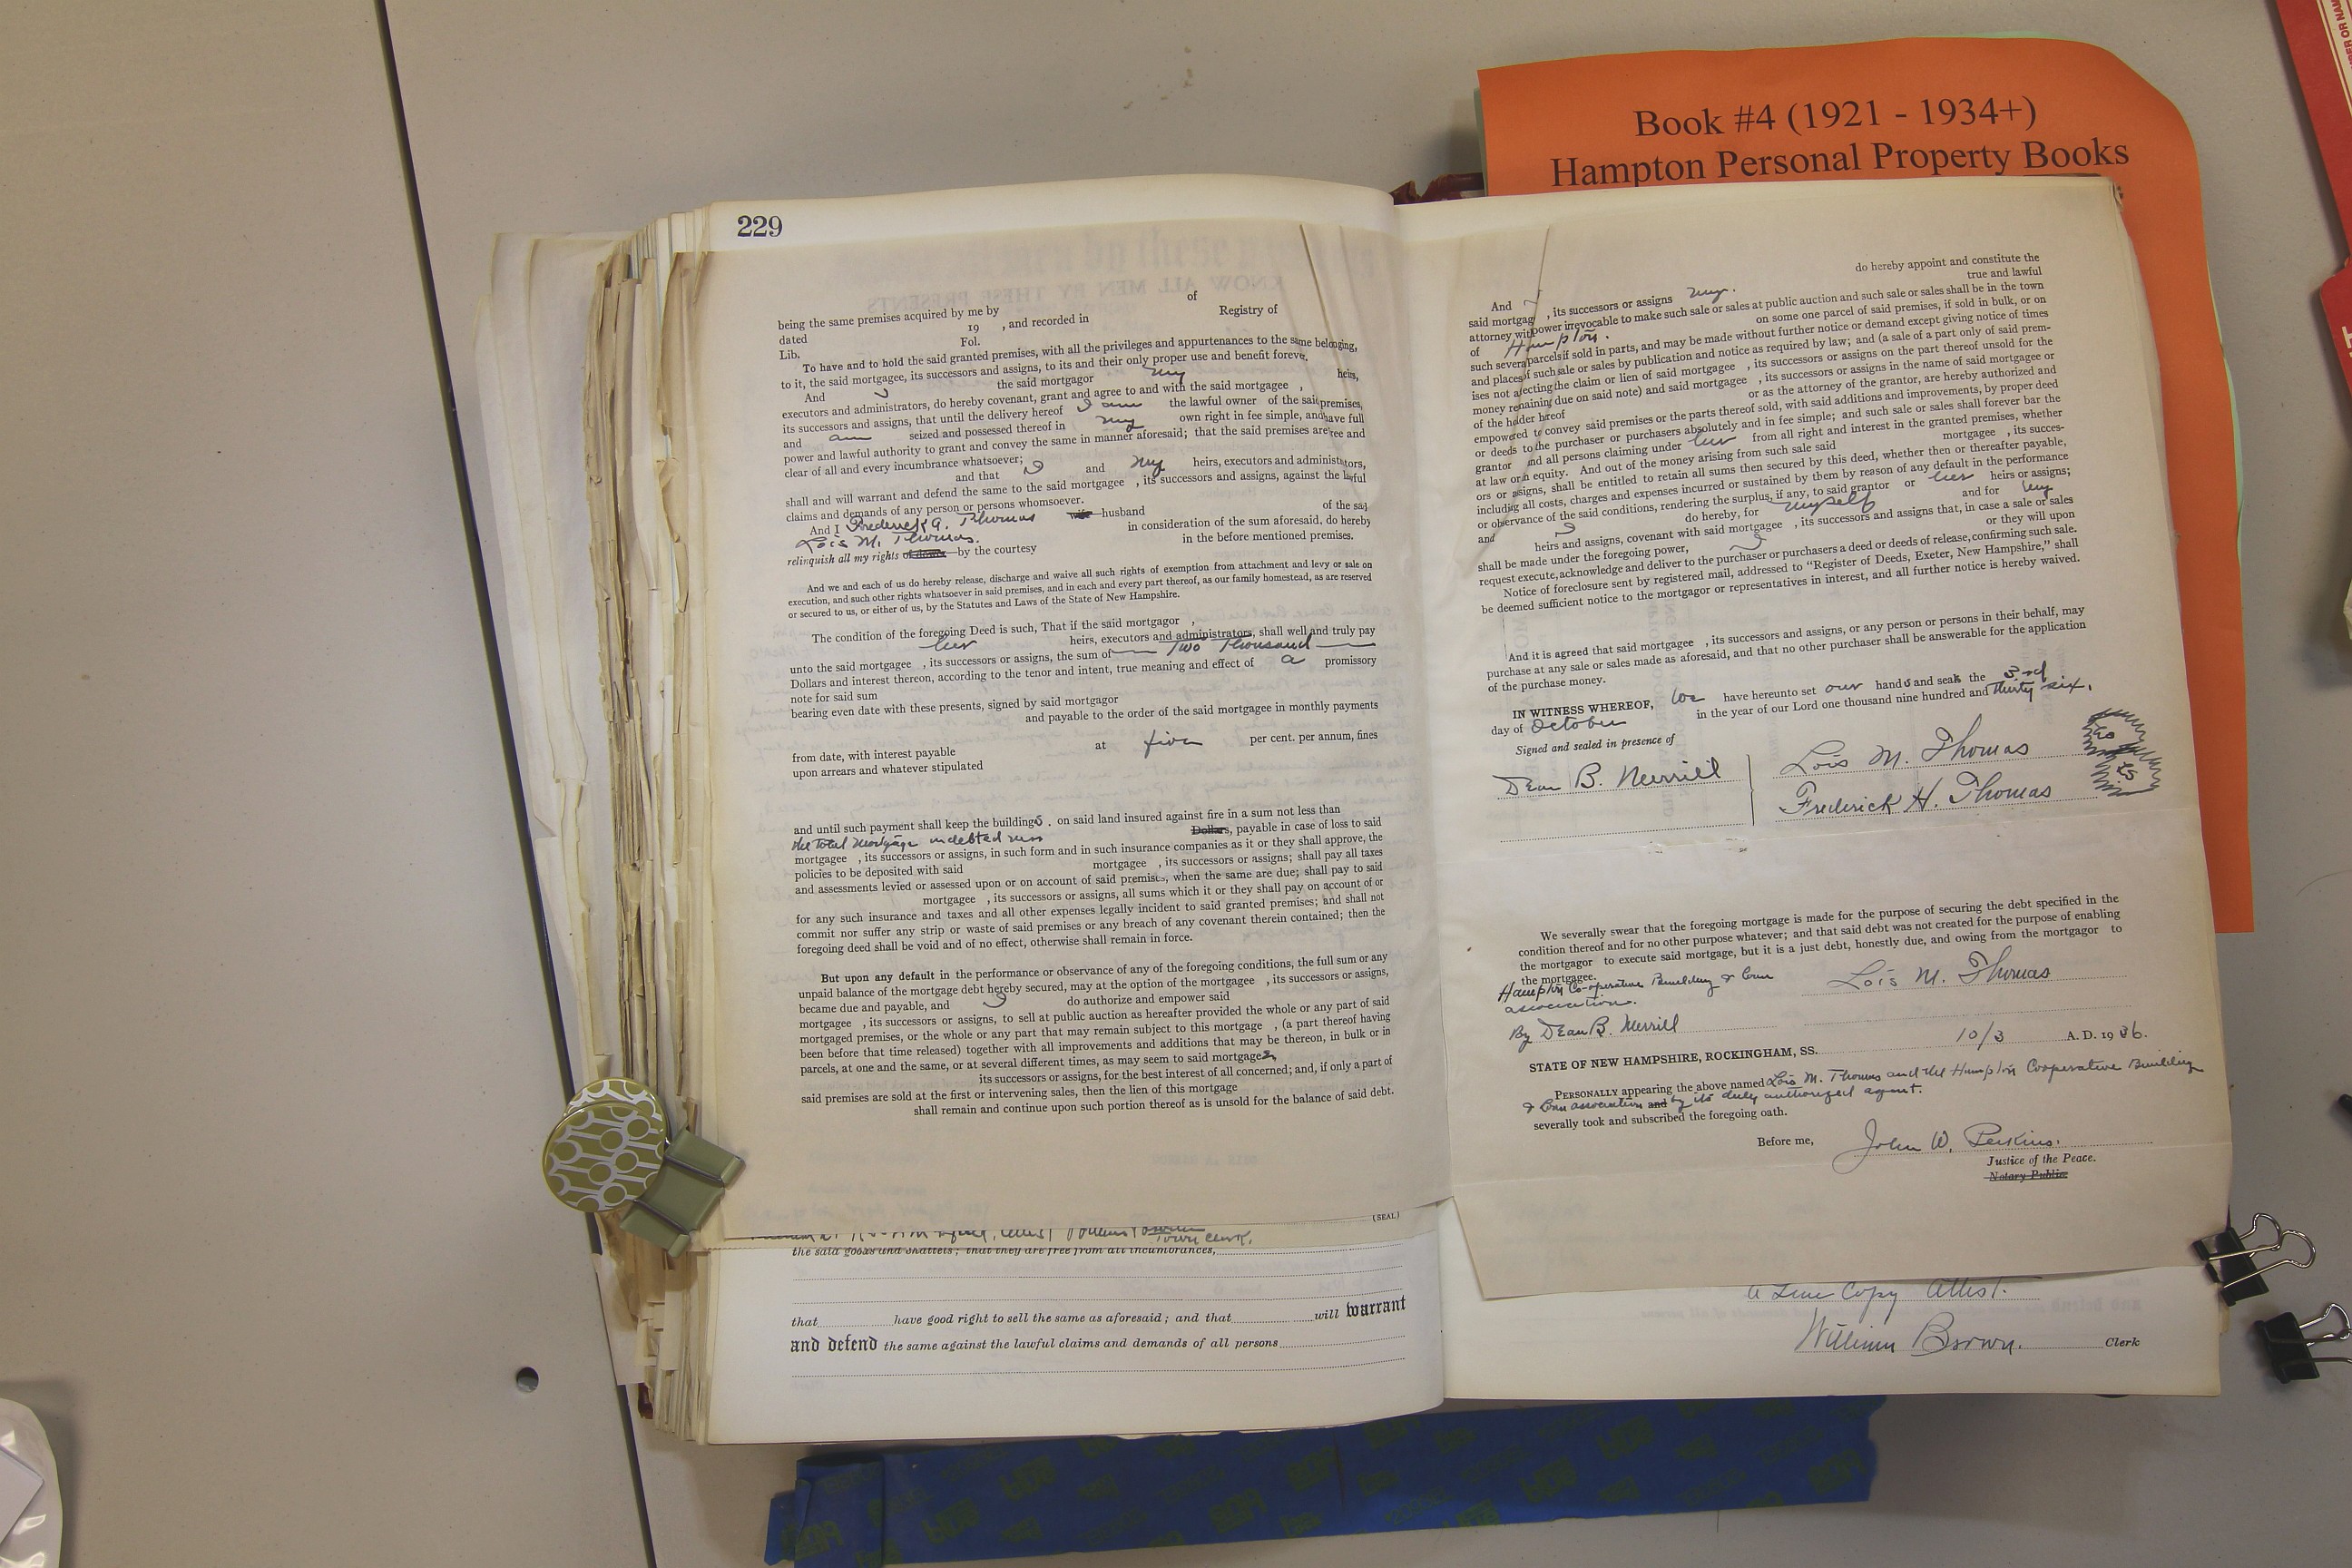 Book #4 (1921 - 1934+)
Hampton Personal Property Books
229
being the same premises acquired by me by of
dated 19 , and recorded in Registry of
Lib. Fol.
To have and to hold the said granted premises, with all the privileges and appurtenances to the same belonging,
to it, the said mortgagee, its successors and assigns, to its and their only proper use and benefit forever.
And I the said mortgagor my heirs,
executors and administrators, do hereby covenant, grant and agree to and with the said mortgagee ,
its successors and assigns, that until the delivery hereof I am the lawful owner of the said premises,
and am seized and possessed thereof in my own right in fee simple, and have full
power and lawful authority to grant and convey the same in manner aforesaid; that the said premises are free and
clear of all and every incumbrance whatsoever;
and that I and my heirs, executors and administrators,
shall and will warrant and defend the same to the said mortgagee , its successors and assigns, against the lawful
claims and demands of any person or persons whomsoever.
And I Frederick A. Thomas wife husband of the said
Lois M. Thomas. in consideration of the sum aforesaid, do hereby
relinquish all my rights of dower by the courtesy in the before mentioned premises.
And we and each of us do hereby release, discharge and waive all such rights of exemption from attachment and levy or sale on
execution, and such other rights whatsoever in said premises, and in each and every part thereof, as our family homestead, as are reserved
or secured to us, or either of us, by the Statutes and Laws of the State of New Hampshire.
The condition of the foregoing Deed is such, That if the said mortgagor ,
her heirs, executors and administrators, shall well and truly pay
unto the said mortgagee , its successors or assigns, the sum of Two Thousand
Dollars and interest thereon, according to the tenor and intent, true meaning and effect of a promissory
note for said sum
bearing even date with these presents, signed by said mortgagor
and payable to the order of the said mortgagee in monthly payments
from date, with interest payable at five per cent. per annum, fines
upon arrears and whatever stipulated
and until such payment shall keep the buildings . on said land insured against fire in a sum not less than
the total mortgage indebtedness Dollars, payable in case of loss to said
mortgagee , its successors or assigns, in such form and in such insurance companies as it or they shall approve, the
policies to be deposited with said mortgagee , its successors or assigns; shall pay all taxes
and assessments levied or assessed upon or on account of said premises, when the same are due; shall pay to said
mortgagee , its successors or assigns, all sums which it or they shall pay on account of or
for any such insurance and taxes and all other expenses legally incident to said granted premises; and shall not
commit nor suffer any strip or waste of said premises or any breach of any covenant therein contained; then the
foregoing deed shall be void and of no effect, otherwise shall remain in force.
But upon any default in the performance or observance of any of the foregoing conditions, the full sum or any
unpaid balance of the mortgage debt hereby secured, may at the option of the mortgagee , its successors or assigns,
became due and payable, and I do authorize and empower said
mortgagee , its successors or assigns, to sell at public auction as hereafter provided the whole or any part of said
mortgaged premises, or the whole or any part that may remain subject to this mortgage , (a part thereof having
been before that time released) together with all improvements and additions that may be thereon, in bulk or in
parcels, at one and the same, or at several different times, as may seem to said mortgagee
its successors or assigns, for the best interest of all concerned; and, if only a part of
said premises are sold at the first or intervening sales, then the lien of this mortgage
shall remain and continue upon such portion thereof as is unsold for the balance of said debt.
(SEAL)
Town Clerk.
the said goods and chattels; that they are free from all incumbrances,
that have good right to sell the same as aforesaid; and that will warrant
and defend the same against the lawful claims and demands of all persons
And I do hereby appoint and constitute the
said mortgag , its successors or assigns my. true and lawful
attorney with power irrevocable to make such sale or sales at public auction and such sale or sales shall be in the town
of Hampton. on some one parcel of said premises, if sold in bulk, or on
such several parcels if sold in parts, and may be made without further notice or demand except giving notice of times
and places of such sale or sales by publication and notice as required by law; and (a sale of a part only of said prem-
ises not affecting the claim or lien of said mortgagee , its successors or assigns on the part thereof unsold for the
money remaining due on said note) and said mortgagee , its successors or assigns in the name of said mortgagee or
of the holder hereof or as the attorney of the grantor, are hereby authorized and
empowered to convey said premises or the parts thereof sold, with said additions and improvements, by proper deed
or deeds to the purchaser or purchasers absolutely and in fee simple; and such sale or sales shall forever bar the
grantor and all persons claiming under her from all right and interest in the granted premises, whether
at law or in equity. And out of the money arising from such sale said mortgagee , its succes-
ors or assigns, shall be entitled to retain all sums then secured by this deed, whether then or thereafter payable,
including all costs, charges and expenses incurred or sustained by them by reason of any default in the performance
or observance of the said conditions, rendering the surplus, if any, to said grantor or her heirs or assigns;
and I do hereby, for myself and for my
heirs and assigns, covenant with said mortgagee , its successors and assigns that, in case a sale or sales
shall be made under the foregoing power, I or they will upon
request execute, acknowledge and deliver to the purchaser or purchasers a deed or deeds of release, confirming such sale.
Notice of foreclosure sent by registered mail, addressed to "Register of Deeds, Exeter, New Hampshire," shall
be deemed sufficient notice to the mortgagor or representatives in interest, and all further notice is hereby waived.
And it is agreed that said mortgagee , its successors and assigns, or any person or persons in their behalf, may
purchase at any sale or sales made as aforesaid, and that no other purchaser shall be answerable for the application
of the purchase money.
IN WITNESS WHEREOF, we have hereunto set our hands and seals the 3rd
day of October in the year of our Lord one thousand nine hundred and thirty six.
Signed and sealed in presence of
Dean B. Merrill Lois M. Thomas
Frederick H. Thomas
We severally swear that the foregoing mortgage is made for the purpose of securing the debt specified in the
condition thereof and for no other purpose whatever; and that said debt was not created for the purpose of enabling
the mortgagor to execute said mortgage, but it is a just debt, honestly due, and owing from the mortgagor to
the mortgagee.
Hampton Co-operative Building & Loan Lois M. Thomas
association.
By Dean B. Merrill
STATE OF NEW HAMPSHIRE, ROCKINGHAM, SS. 10/3 A. D. 1936.
PERSONALLY appearing the above named Lois M. Thomas and the Hampton Cooperative Building
& Loan association and by its duly authorized agent.
severally took and subscribed the foregoing oath.
Before me, John W. Perkins.
Justice of the Peace.
Notary Public.
A True Copy Attest.
William Brown. Clerk